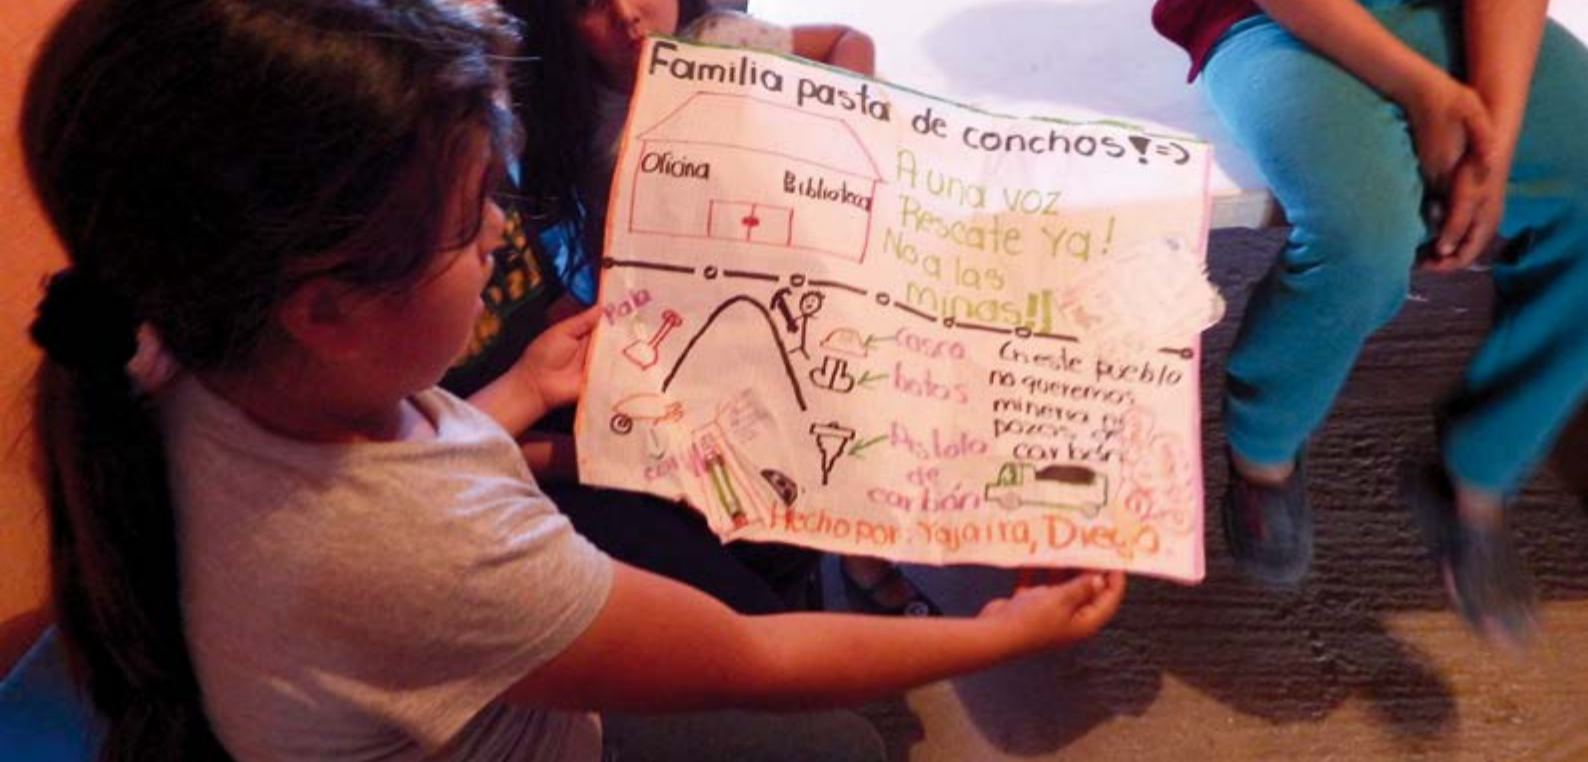 Familia pasta de conchos!=>
Oficina
Biblioteca
A una voz
Rescate Ya!
No a las
minas!!
Pala
casco
botas
Pistola
de
carbón
En este pueblo
no queremos
mineria ni
pozos de
carbón
Hecho por: Yajaira, Diego